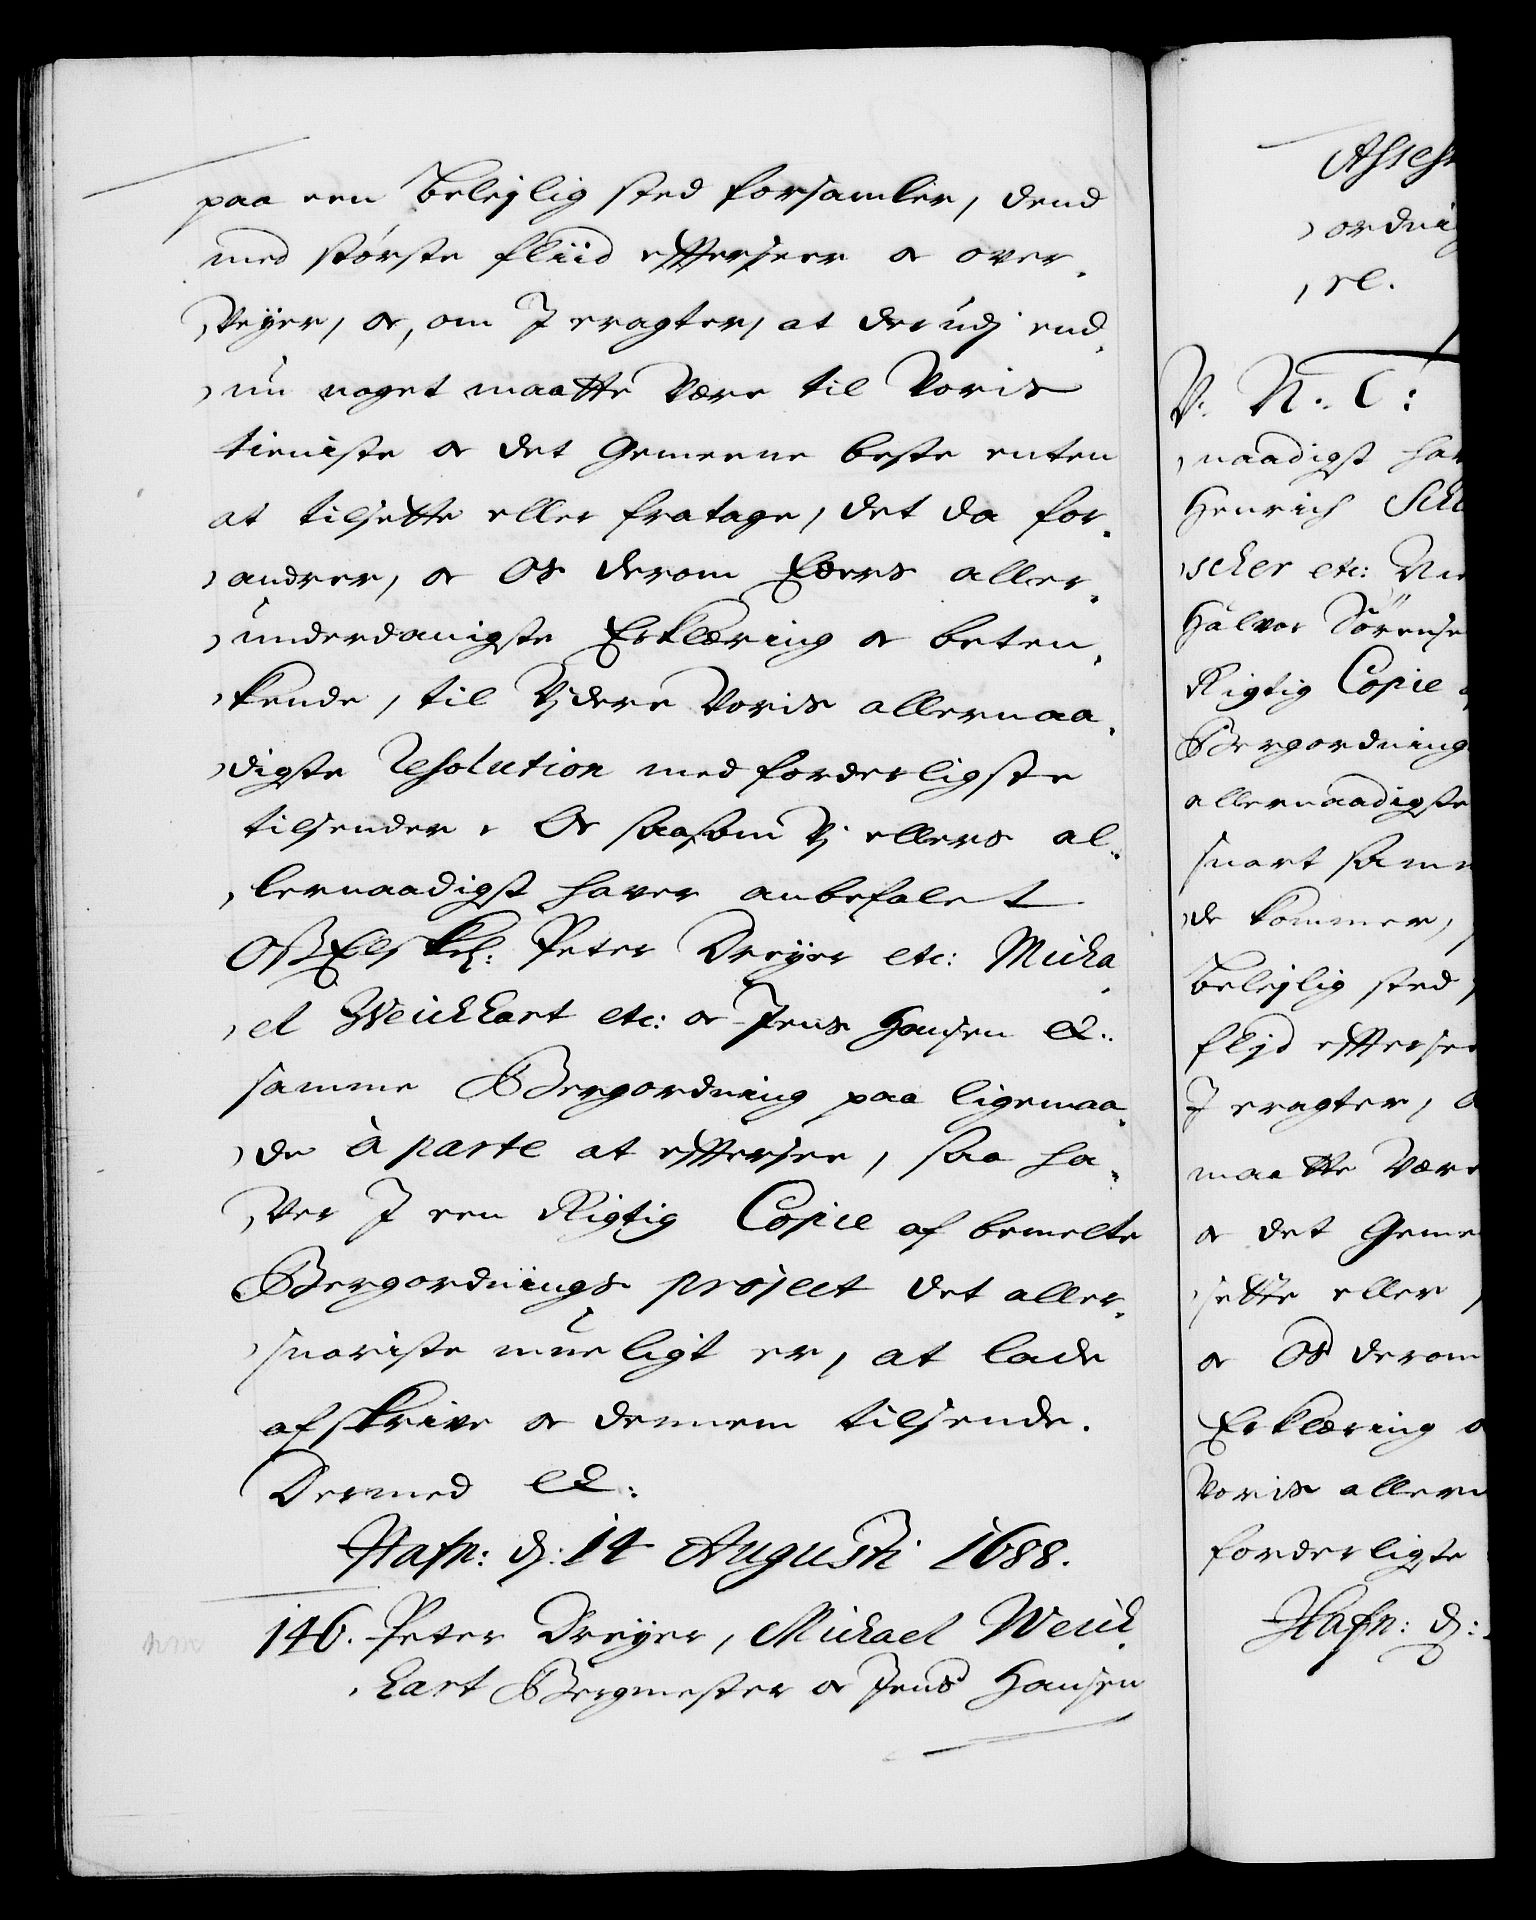 paa een belejlig sted forsamler, dend
med største fliid effterseer oc over¬
vejer, oc, om I eragter, at derudj end¬
nu noget maatte være til Voris
tieniste oc det gemeene beste enten
at tilsette eller fratage, det da for¬
andrer, oc Os derom Eders aller¬
underdanigste Erklæring oc beten¬
kende, til Vjdere Voris allernaa¬
digste Resolution med forderligste
tilsender. Oc saasom Vj ellers al¬
lernaadigst haver anbefalet
Oß Elskel: Peter Dreyer etc: Micha¬
el Weichhart etc: oc Jens Hansen &c:
samme Bergordning paa ligemaa¬
de à parte at effterseer, saa ha¬
ver I een Rigtig Copie af bemelte
Bergordnings project det aller¬
snariste mueligt er, at lade
afskrive oc dennem tilsende.
Dermed &c:
Hafn: d: 14 Augusti 1688.
146. Peter Dreyer, Michael Weich¬
hart Bergmester oc Jens Hansen
Assess
ordnin
re.
V. N. C:
naadigst hav
Henrich Sch
scher etc: Nie
Halvor Sörense
Rigtig Copie
Bergordning
allernaadigste
snart samm
de kommer,
belejlig sted
flijd effterse
I eragter, a
maatte være
oc det Geme
sette eller
oc Os derom
Erklæring o
Voris allern
forderligte
Hafn: d: